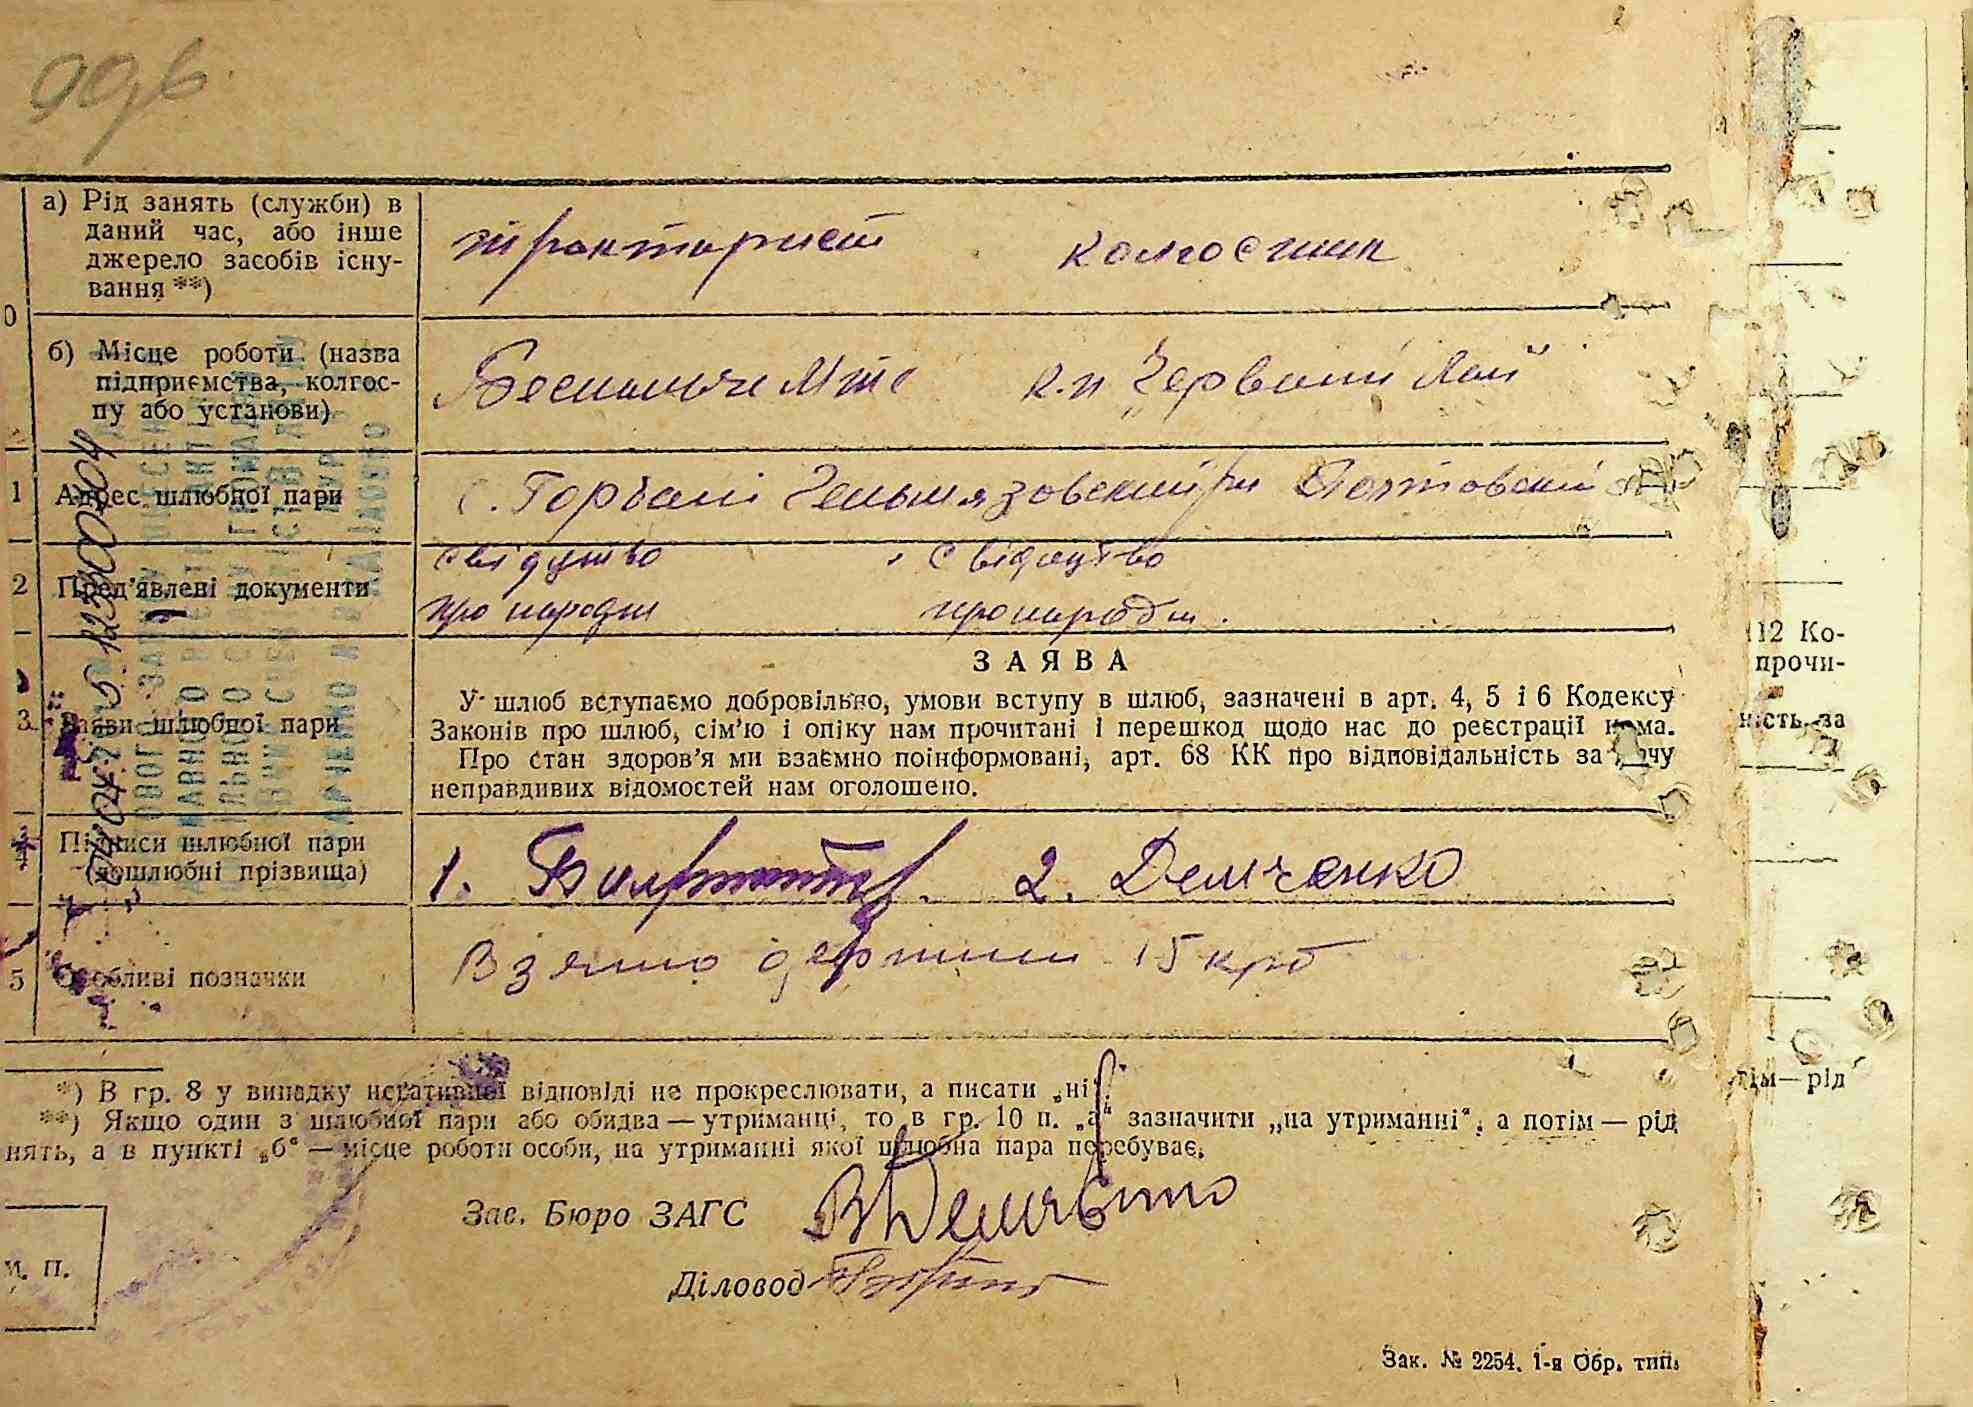 996.
а) Рід занять (служби) в
даний час, або інше
джерело засобів існу-
вання **)
тракторист колгосник
0
б) Місце роботи (назва
підприємства, колгос-
пу або установи)
Мтс к.п "Червоний
1 Адрес шлюбної пари
с. Горбані Гельмязовский р-н Полтовский
2 Пред'явлені документи
свідутво свідоцтво
про народж про народж.
ЗАЯВА
3 Заяви шлюбної пари
У шлюб вступаємо добровільно, умови вступу в шлюб, зазначені в арт. 4, 5 і 6 Кодексу
Законів про шлюб, сім'ю і опіку нам прочитані і перешкод щодо нас до реєстрації нема.
Про стан здоров'я ми взаємно поінформовані, арт. 68 КК про відповідальність за дачу
неправдивих відомостей нам оголошено.
4 Підписи шлюбної пари
(дошлюбні прізвища)
1. 2. Демченко
5 Особливі позначки
Взято державн 15 крб
*) В гр. 8 у випадку негативної відповіді не прокреслювати, а писати „ні".
**) Якщо один з шлюбної пари або обидва — утриманці, то в гр. 10 п. „а" зазначити „на утриманні", а потім — рід
нять, а в пункті „б" — місце роботи особи, на утриманні якої шлюбна пара перебуває.
Зав. Бюро ЗАГС ВДемченко
М. П.
Діловод
Зак. № 2254. 1-я Обр. тип.
12 Ко-
прочи-
ність за
тім — рід